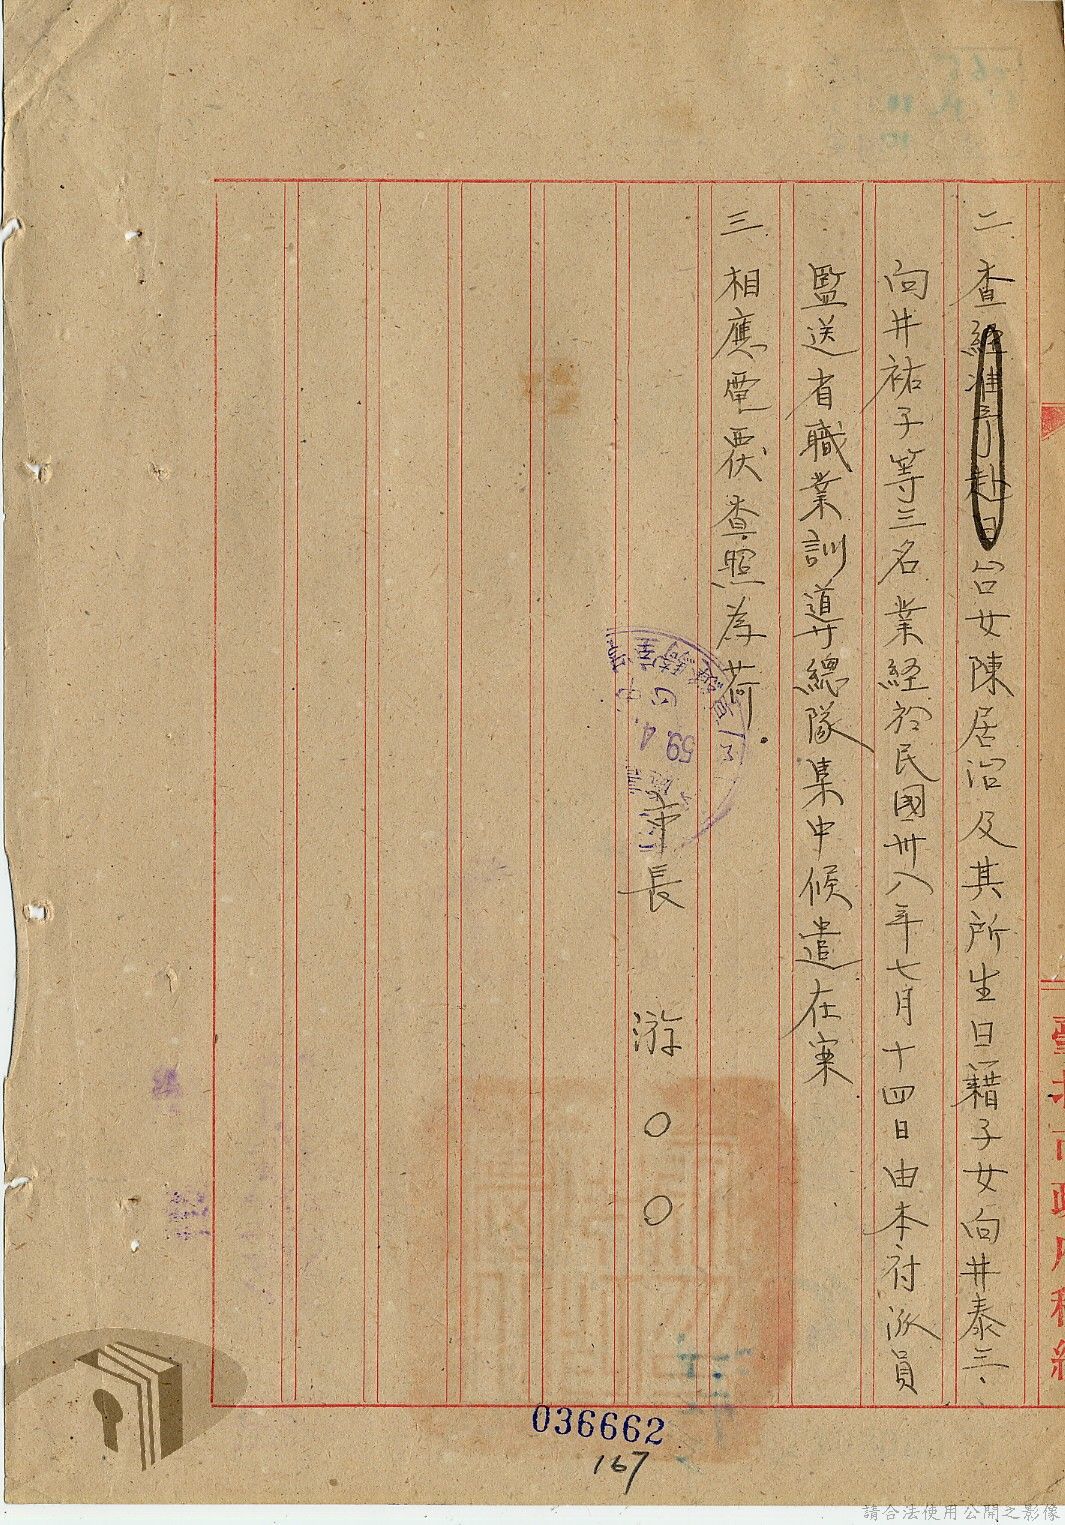 二、查經准予赴日台女陳居治及其所生日籍子女向井泰三、
向井祐子等三名業経於民國卅八年七月十四日由本府派員
監送省職業訓導總隊集中候遣在案
三、相應電覆查照為荷．
市長 游○○
59.4.
036662
167
請合法使用公開之影像